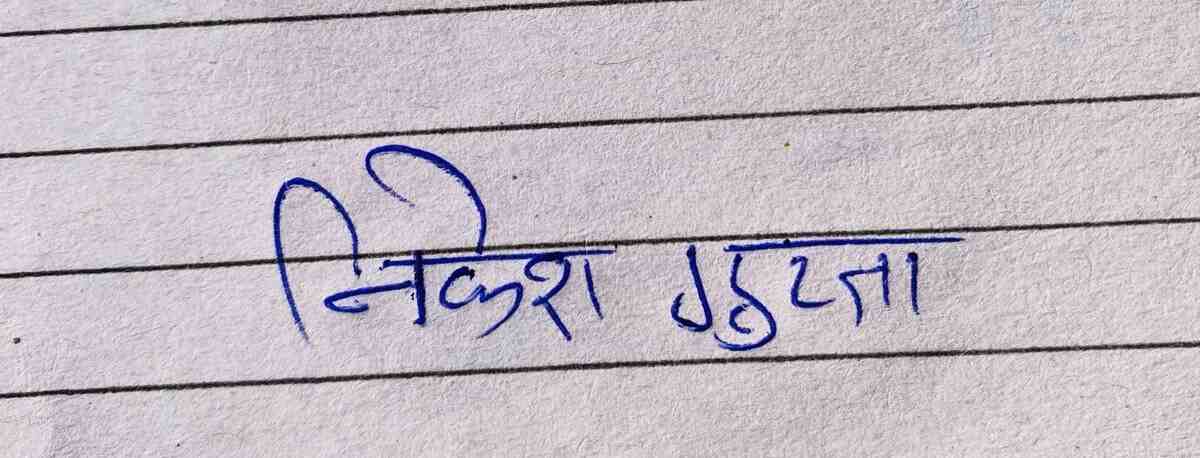 निकेश गुप्ता